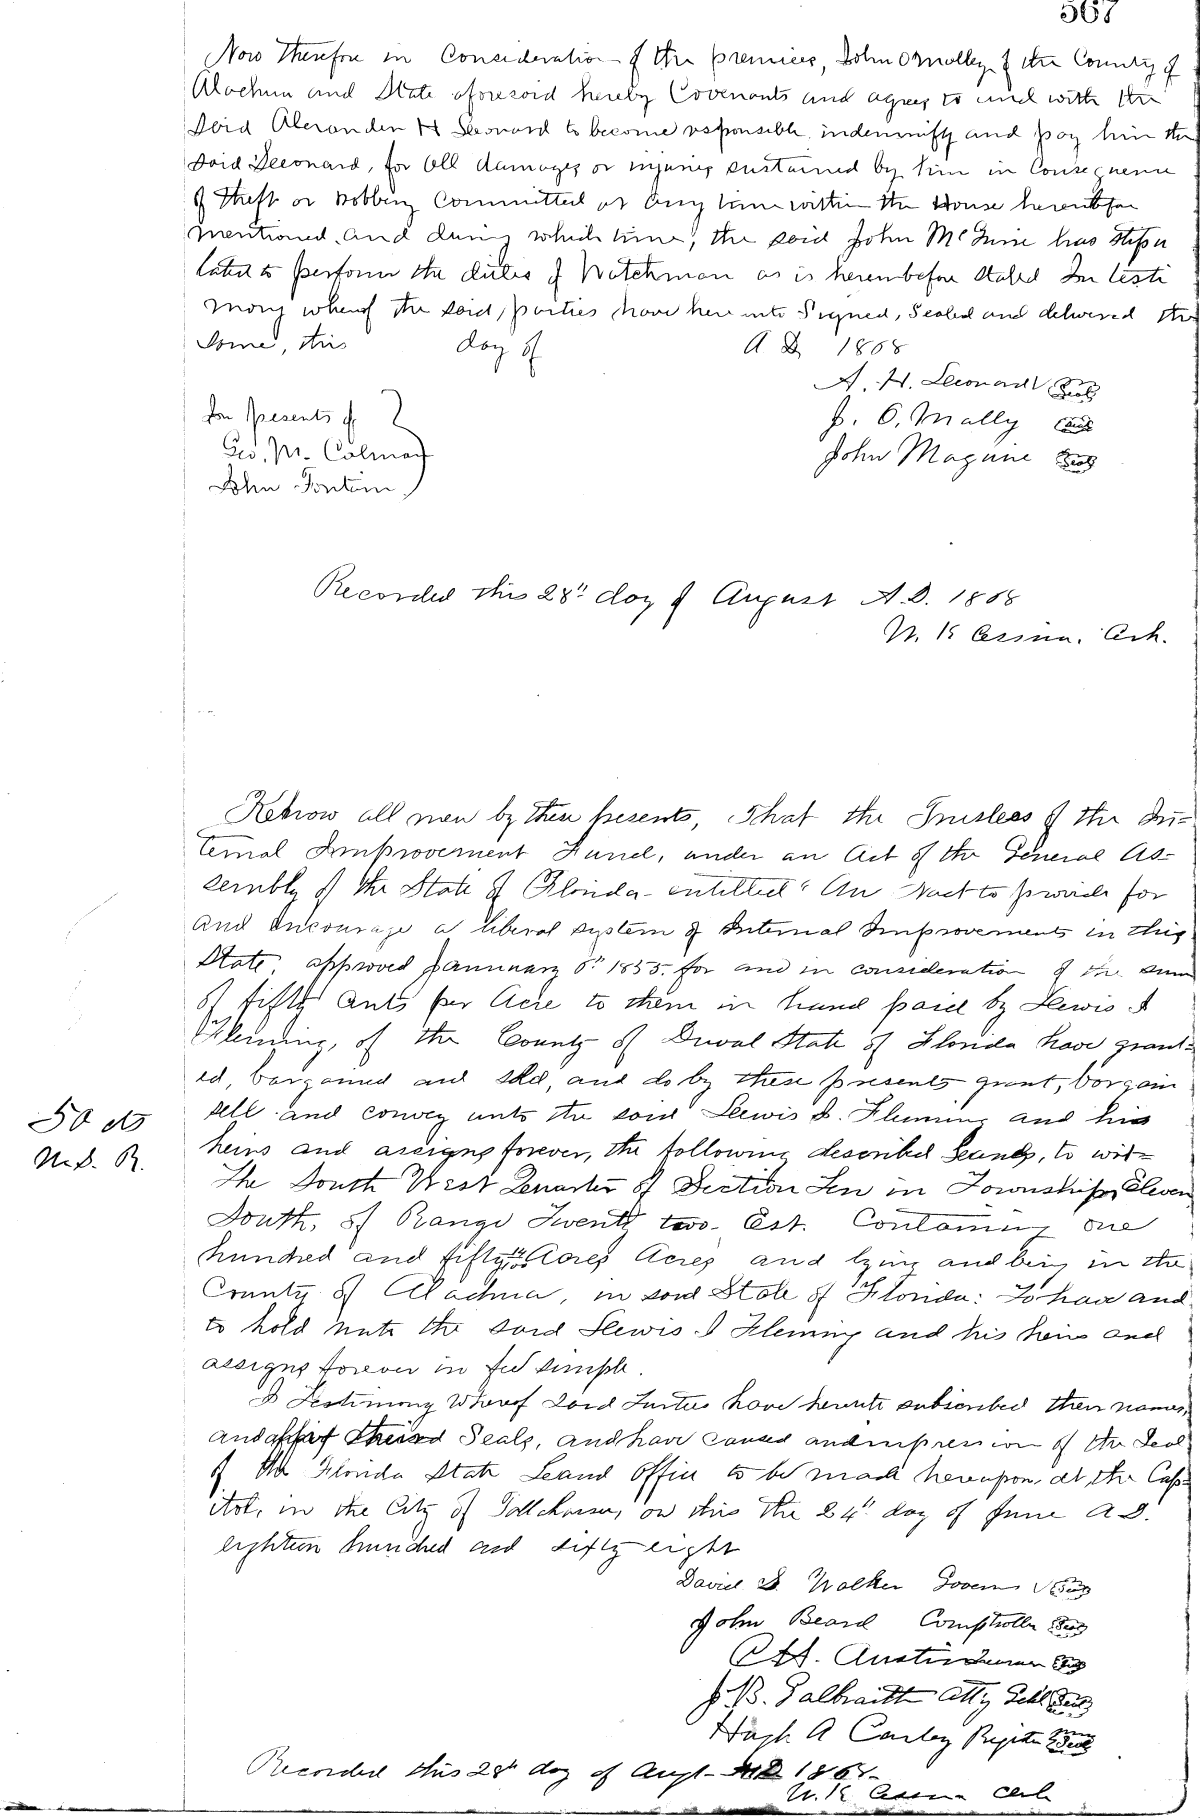 567
Now Therefore in Consideration of the premices, John OMolley of the County of
Alachua and State aforesaid hereby Covenants and agrees to and with the
Said Alexander H Leonard to become responsible indemnify and pay him the
Said Leeonard, for all damages or injuries sustained by him in Consequence
of theft or robbery Committed at any time within the House hereinbefore
mentioned and during which time, the said John McGuire has stipu
lated to perform the duties of Watchman as is hereinbefore stated In testi
mony whereof the said parties have here unto Signed, Sealed and delivered the
Same, this day of A D 1868
A. H. Leeonard Seal
In presents of
J. O, Mally Seal
Geo. M. Colmay
John Maguire Seal
John
Recorded this 28" day of August A.D. 1868
W. K Cessna. Clrk.
Know all men by these presents, That the Trustees of the In=
ternal Improvement Fund, under an Act of the General As=
sembly of the State of Florida entitled "An Act to provide for
and encourage a liberal system of Internal Improvements in this
State, approved January 6th 1855. for and in consideration of the sum
of fifty cents per Acre to them in hand paid by Lewis I
Fleming, of the County of Duval State of Florida have grant=
ed, bargained and sold, and do by these presents grant, bargain
sell and convey unto the said Leewis I. Fleming and his
50 cts
heirs and assigns forever, the following described Lands, to wit=
U.S. R.
The South West Quarter of Section Ten in Township Eleven
South, of Range Twenty two. Est. Containing one
hundred and fifty Acres Acres and lying and being in the
County of Alachua, in said State of Florida: To have and
to hold unto the said Lewis I Fleming and his heirs and
assigns forever in fee simple.
I Testimony Whereof Said Trustees have hereunto subscribed their names,
and affixed their Seals, and have caused and impression of the Seal
of the Florida State Leand Office to be made hereupon, at the Cap=
itol, in the City of Tallahassee, on this the 24" day of June A D.
eighteen hundred and sixty eight
David S. Walker Govern Seal
John Beard Comptroller Seal
C H. Austin Seal
J. B. Galbraith Atty Genl Seal
Hugh A Corley Register Seal
Recorded this 28th day of Augt. AD 1868.
W. K Cessna Clrk